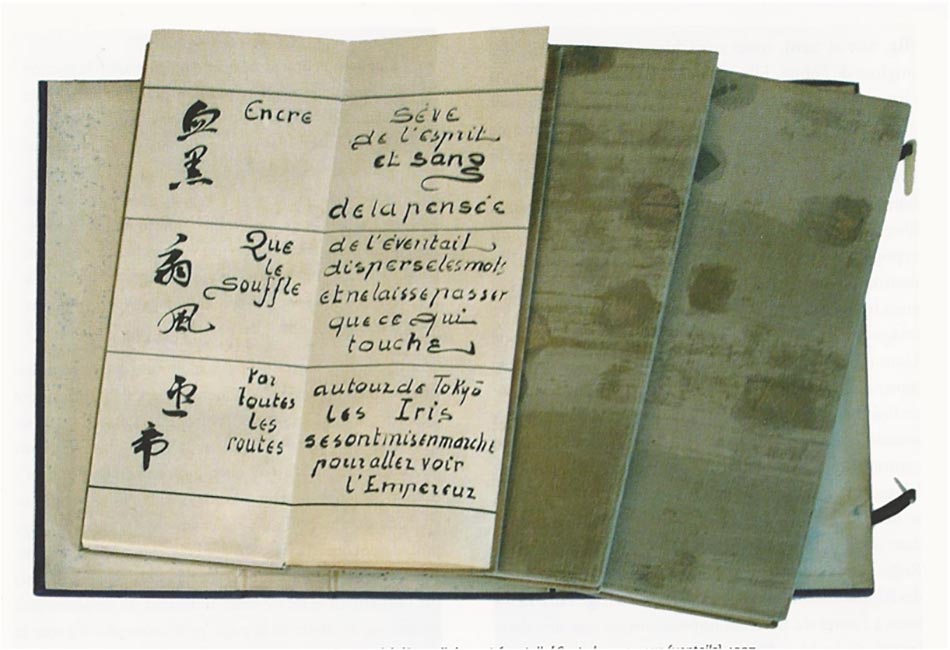 血
黒
Encre
Sève
de l'esprit
et sang
de la pensée
扇
風
Que
le
souffle
de l'éventail
disperselesmots
etnelaissepasser
que ce qui
touche
帝
Par
toutes
les
routes
autour de Tokyō
les Iris
sesontmisenmarche
pour aller voir
l'Empereur